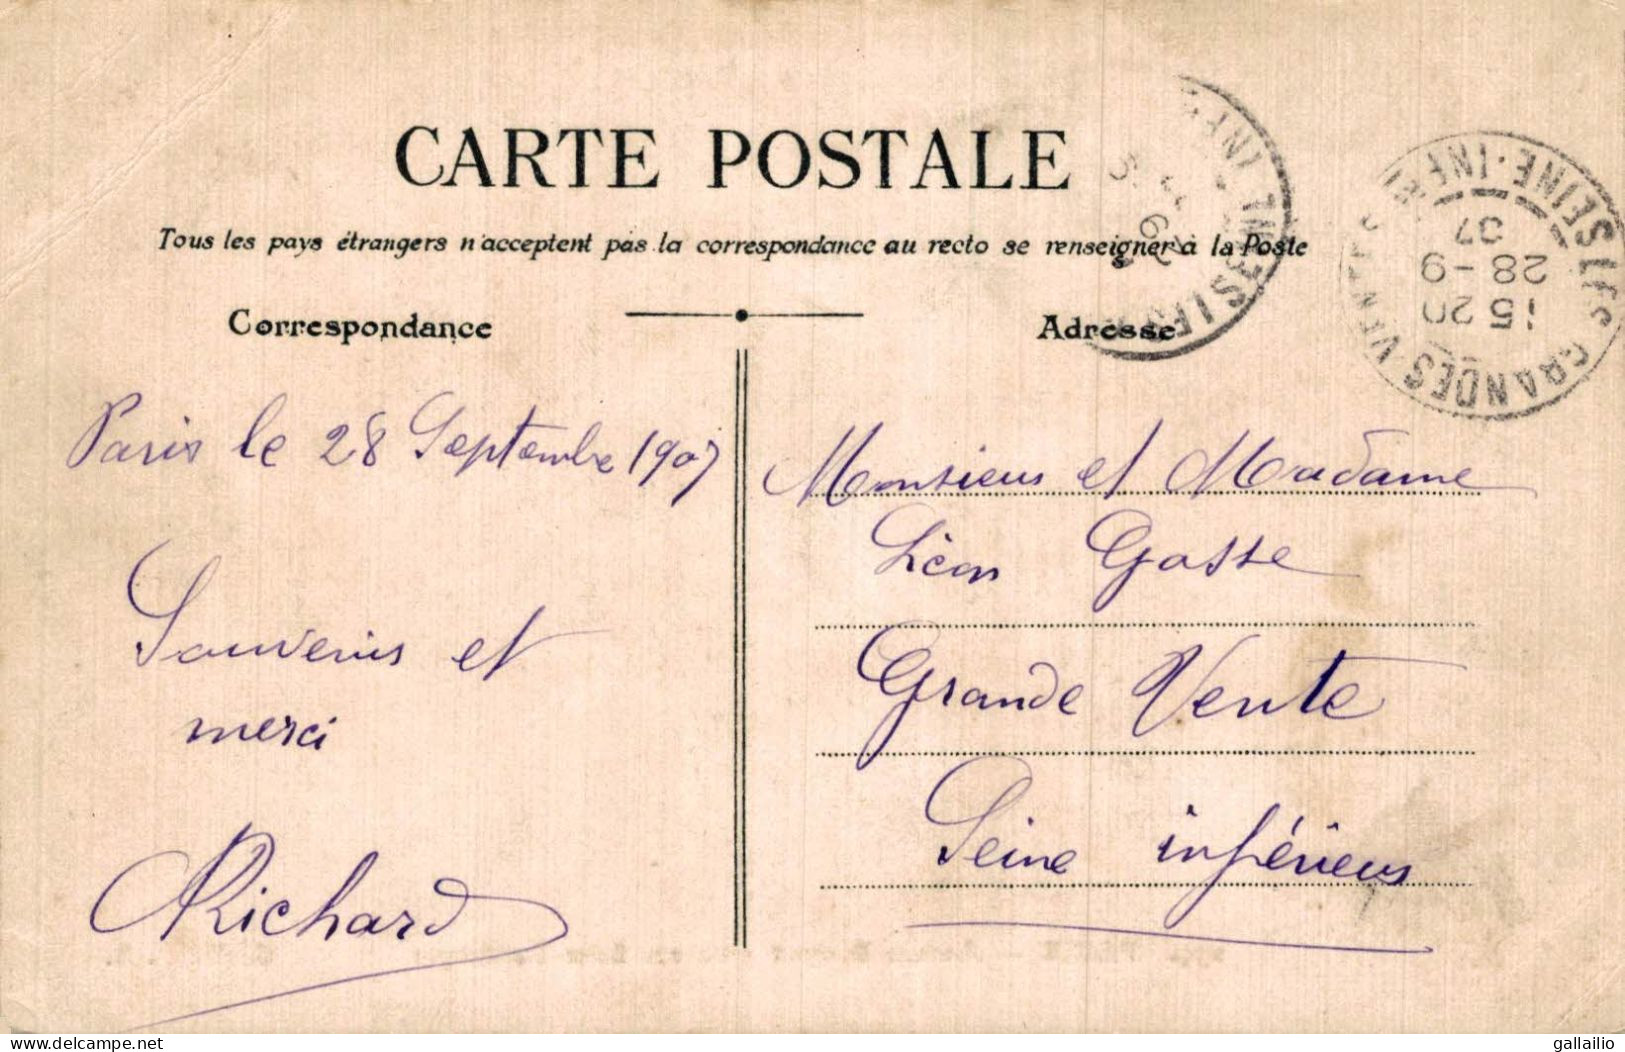 CARTE POSTALE
Tous les pays étrangers n'acceptent pas la correspondance au recto se renseigner à la Poste
Correspondance
Adresse
Paris le 28 Septembre 1907
Souvenirs et
merci
Richard
Monsieur et Madame
Léon Gosse
Grande Vente
Seine inférieur
LES GRANDES VENTES
SEINE-INFRE
15 20
28-9
07
www.delcampe.net
gallailio